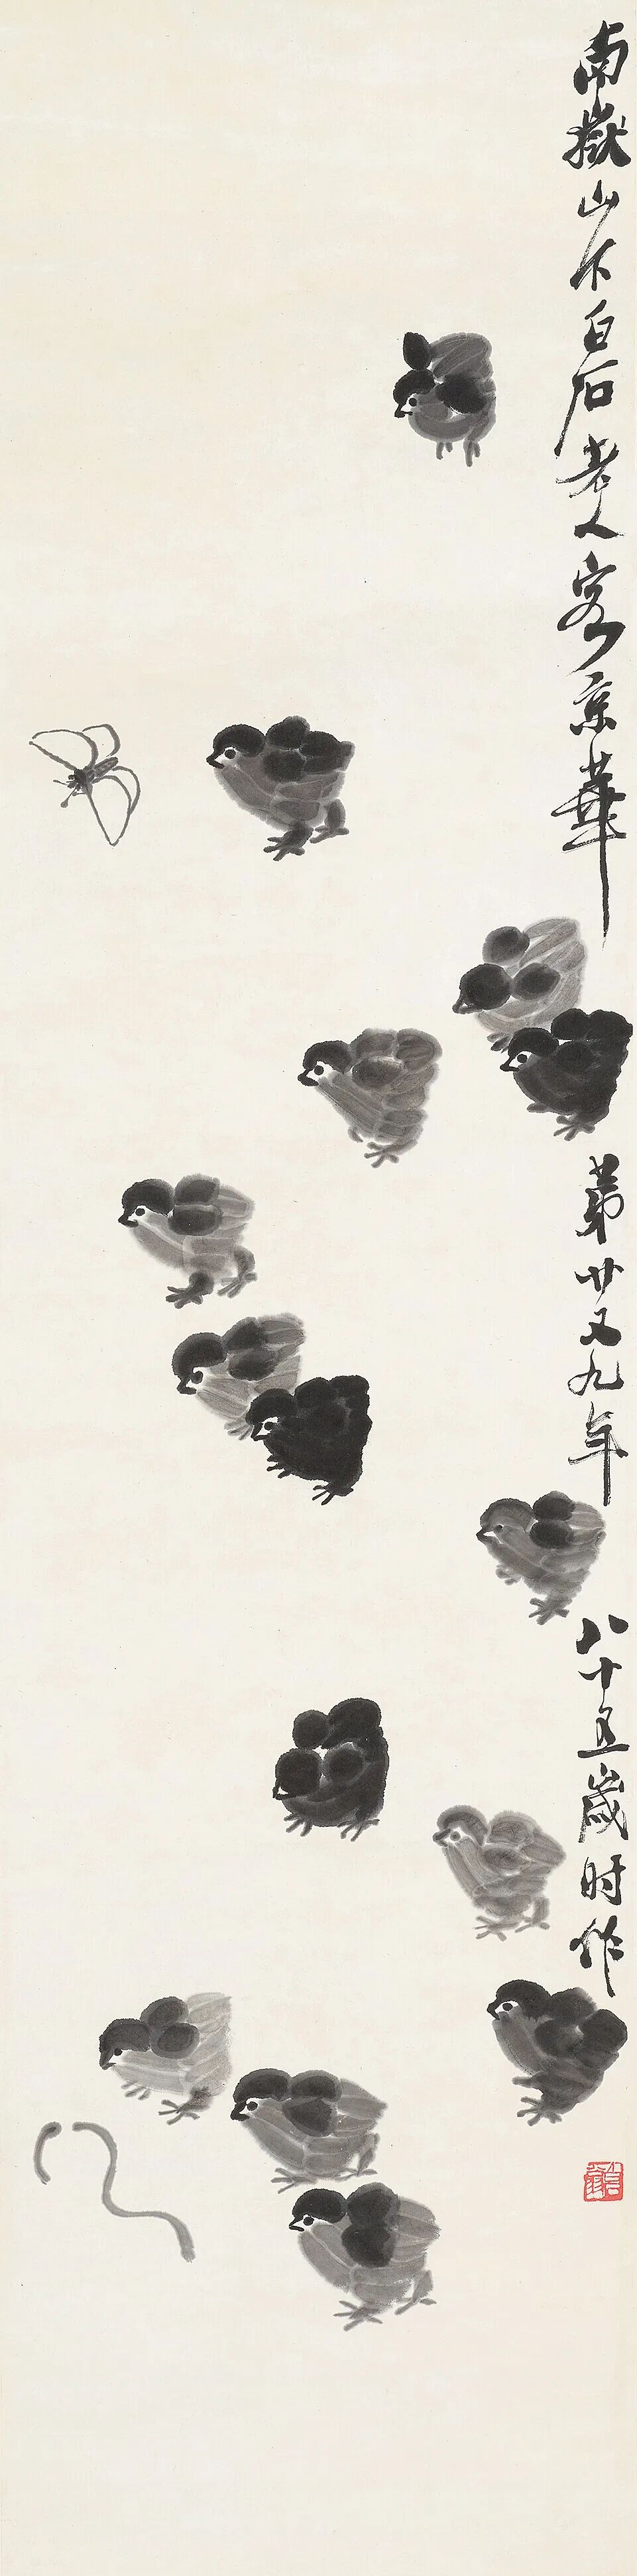 南嶽山下白石老人客京華第廿又九年八十五歲時作